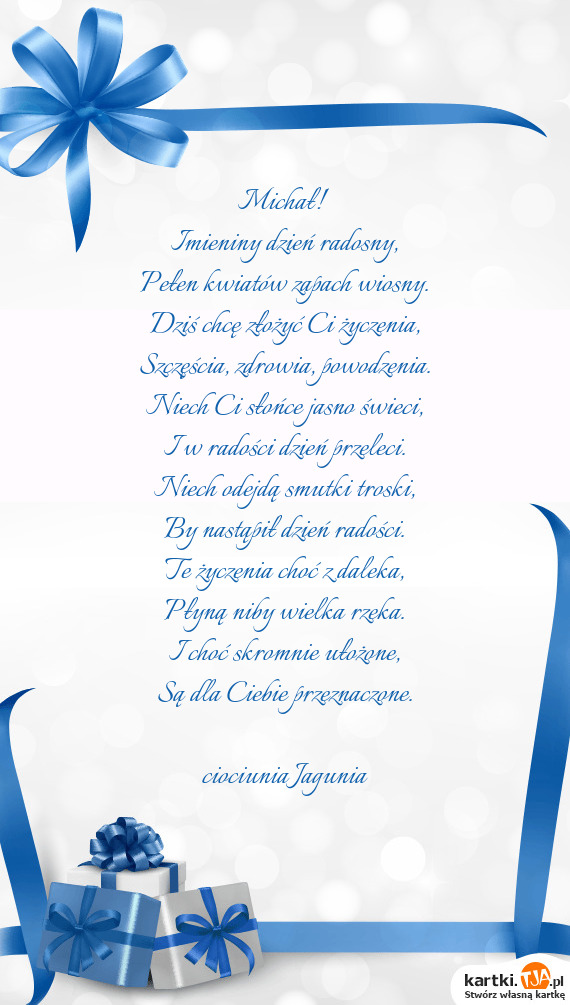 Michał!
Imieniny dzień radosny,
Pełen kwiatów zapach wiosny.
Dziś chcę złożyć Ci życzenia,
Szczęścia, zdrowia, powodzenia.
Niech Ci słońce jasno świeci,
I w radości dzień przeleci.
Niech odejdą smutki troski,
By nastąpił dzień radości.
Te życzenia choć z daleka,
Płyną niby wielka rzeka.
I choć skromnie ułożone,
Są dla Ciebie przeznaczone.
ciociunia Jagunia
kartki.TJA.pl
Stwórz własną kartkę